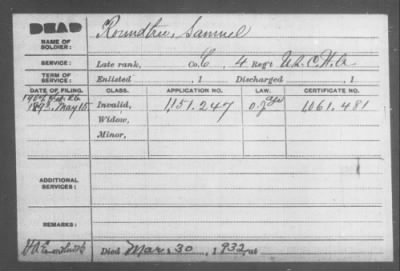 DEAD
NAME OF SOLDIER: Roundtree, Samuel
SERVICE: Late rank, Co. C, 4 Regt U.S.C.H.A
TERM OF SERVICE: Enlisted , 1 Discharged , 1
DATE OF FILING. CLASS. APPLICATION NO. LAW. CERTIFICATE NO.
1907
May 15 Invalid, 1,151.247 1,061.481
Widow,
Minor,
ADDITIONAL SERVICES:
REMARKS:
Died Mar. 30, 1932, at